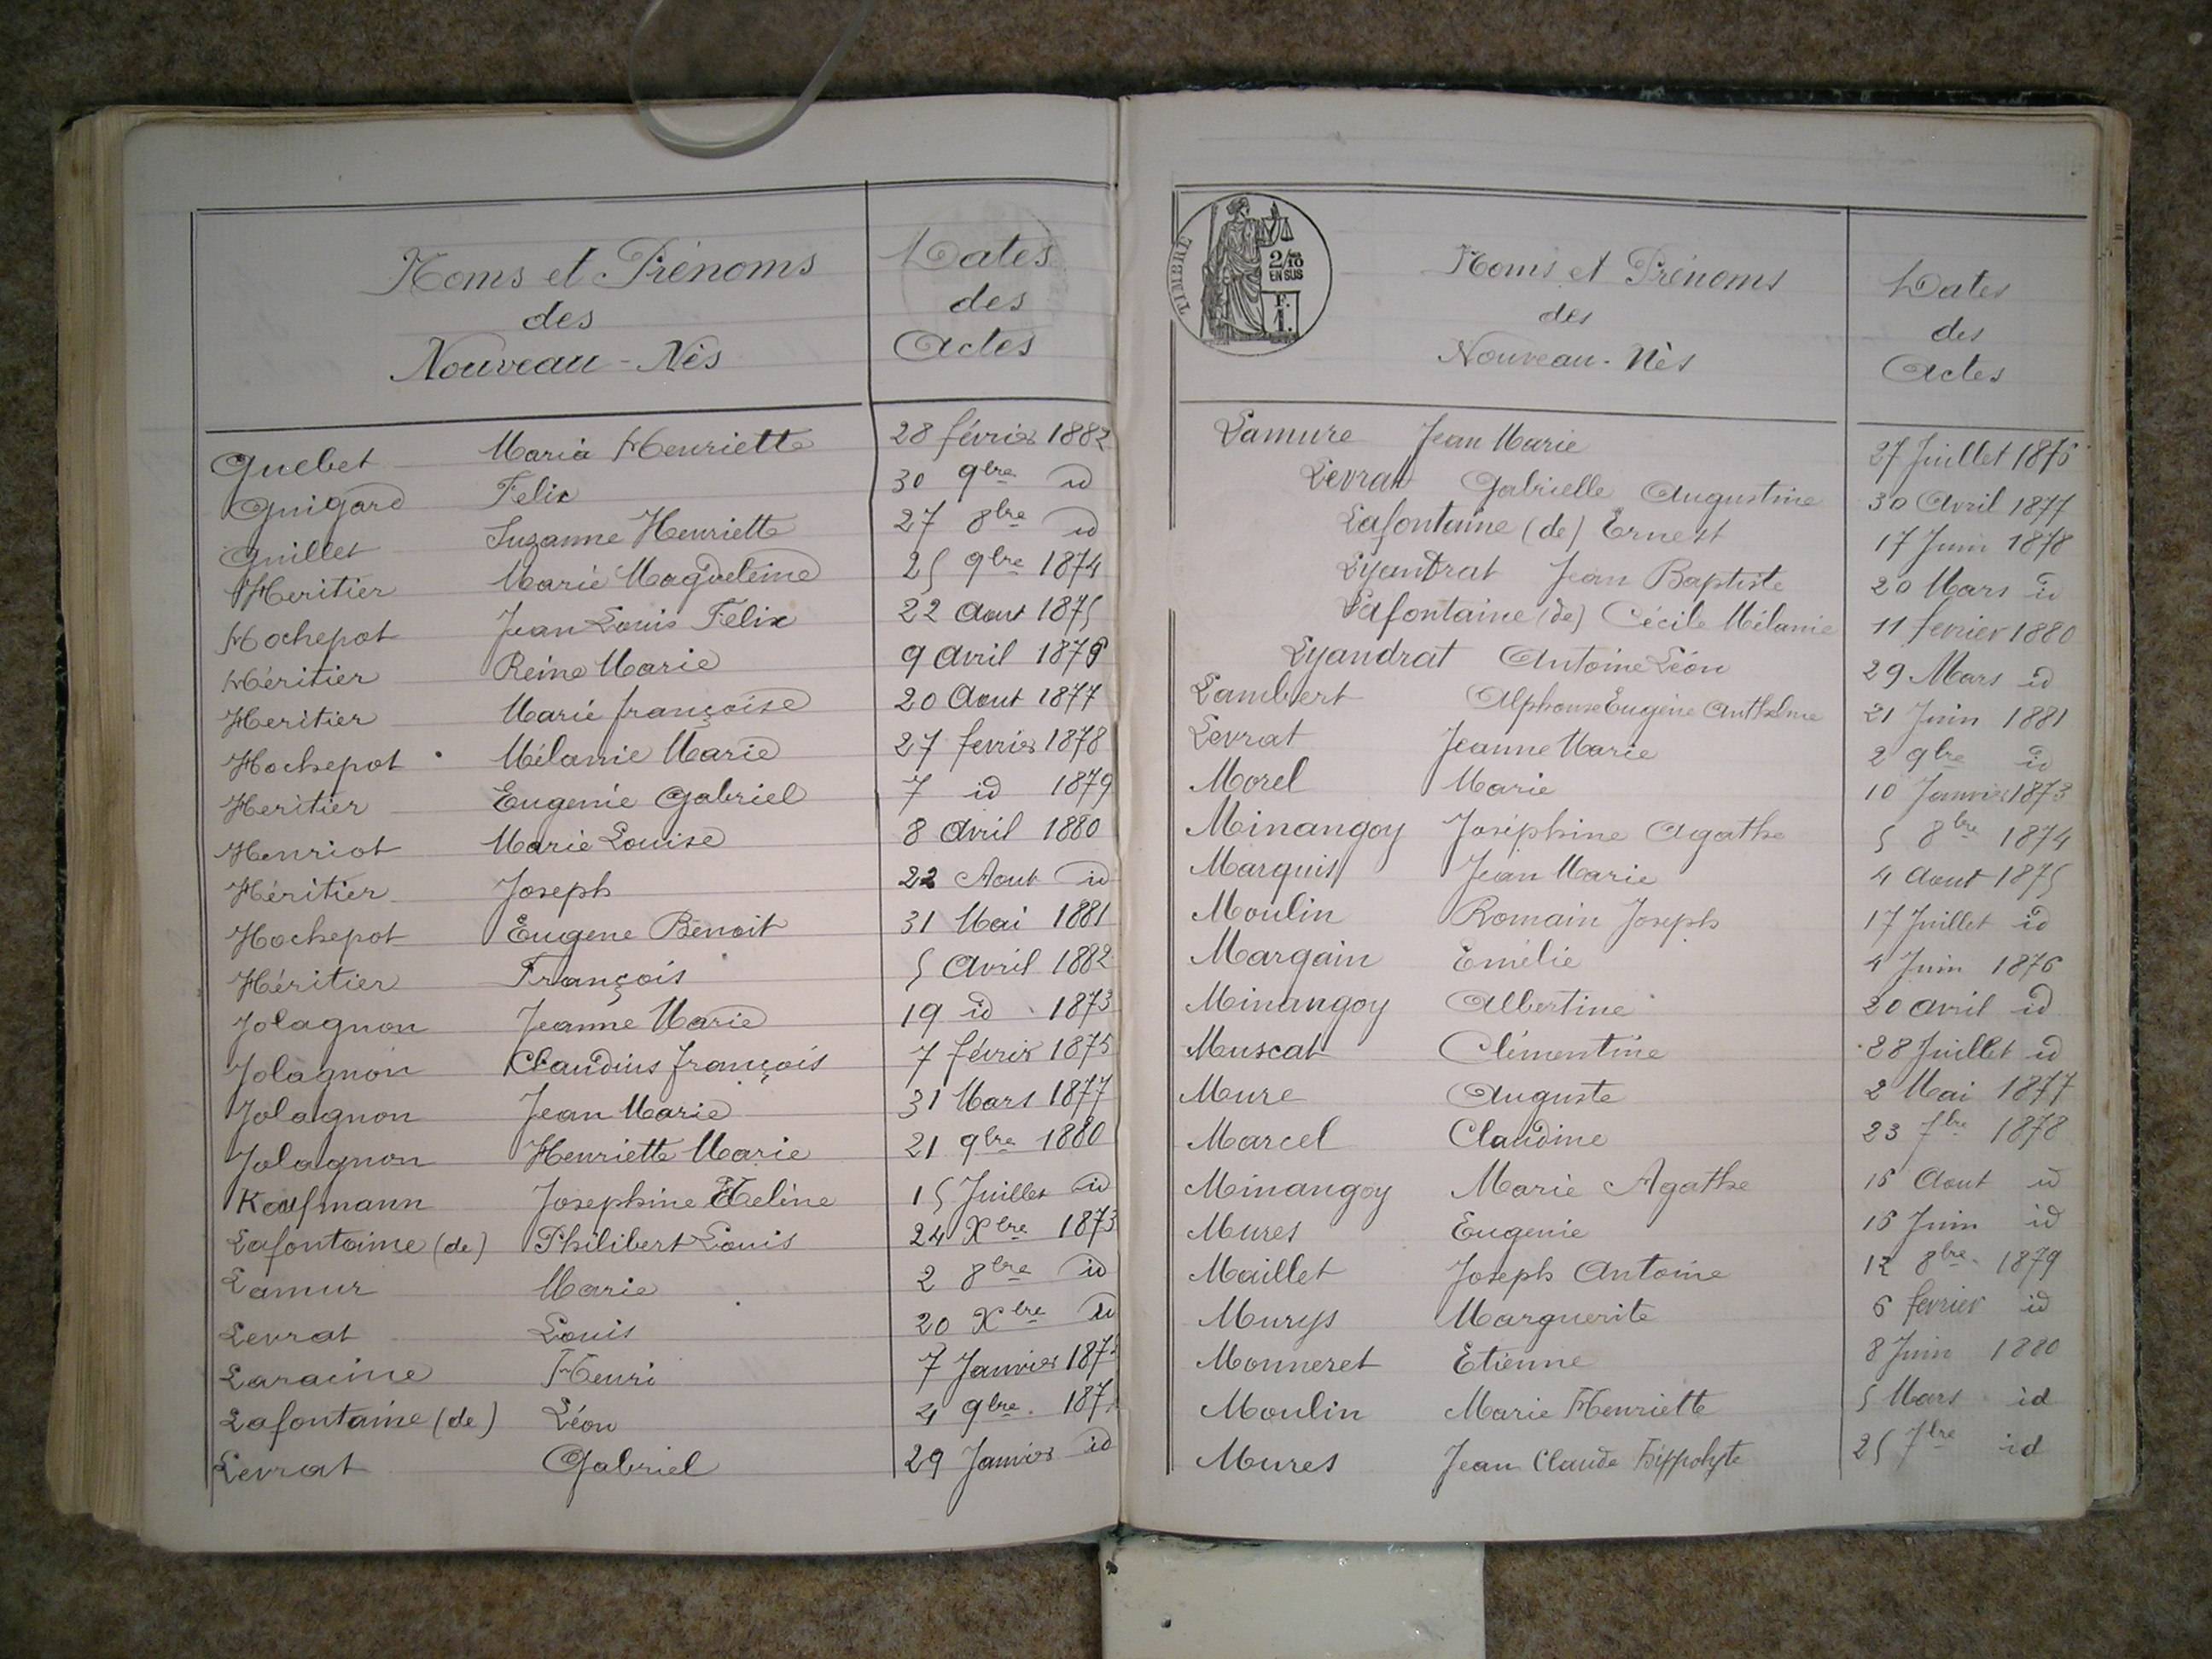 Noms et Prénoms
des
Nouveau-Nés
Dates
des
Actes
Guebet Maria Henriette 28 février 1882
Guigard Felix 30 9bre id
Guillet Suzanne Henriette 27 8bre id
Heritier Marie Magdeleine 25 9bre 1874
Hochepot Jean Louis Felix 22 Aout 1875
Héritier Reine Marie 9 Avril 1876
Heritier Marie françoise 20 Aout 1877
Hochepot Mélanie Marie 27 fevrier 1878
Heritier Eugenie Gabriel 7 id 1879
Henriot Marie Louise 8 Avril 1880
Héritier Joseph 22 Aout id
Hochepot Eugene Benoit 31 Mai 1881
Héritier François 5 Avril 1882
Jolagnon Jeanne Marie 19 id 1873
Jolagnon Claudius françois 7 févrir 1875
Jolagnon Jean Marie 31 Mars 1877
Jolagnon Henriette Marie 21 9bre 1880
Kaufmann Josephine Heline 15 Juillet id
Lafontaine (de) Philibert Louis 24 Xbre 1873
Lamur Marie 2 8bre id
Levrat Louis 20 Xbre id
Laracine Henri 7 Janvier
Lafontaine (de) Léon 4 9bre
Levrat Gabriel 29 Janvier id
TIMBRE
2/10
EN SUS
F.
1.
Noms et Prénoms
des
Nouveau-Nés
Dates
des
Actes
Lamure Jean Marie 27 Juillet 1876
Levrat Gabrielle Augustine 30 Avril 1877
Lafontaine (de) Ernest 17 Juin 1878
Lyandrat Jean Baptiste 20 Mars id
Lafontaine (de) Cécile Mélanie 11 fevrier 1880
Lyandrat Antoine Léon 29 Mars id
Lambert Alphonse Eugène Anthelme 21 Juin 1881
Levrat Jeanne Marie 2 9bre id
Morel Marie 10 Janvier 1873
Minangoy Joséphine Agathe 5 8bre 1874
Marquis Jean Marie 4 Aout 1875
Moulin Romain Joseph 17 Juillet id
Margain Emélie 4 Juin 1876
Minangoy Albertine 20 avril id
Muscat Clémentine 28 Juillet id
Mure Auguste 2 Mai 1877
Marcel Claudine 23 7bre 1878
Minangoy Marie Agathe 16 Aout id
Mures Eugenie 16 Juin id
Maillet Joseph Antoine 12 8bre 1879
Murys Marguerite 6 fevrier id
Monneret Etienne 8 Juin 1880
Moulin Marie Henriette 5 Mars id
Mures Jean Claude Hippolyte 25 7bre id